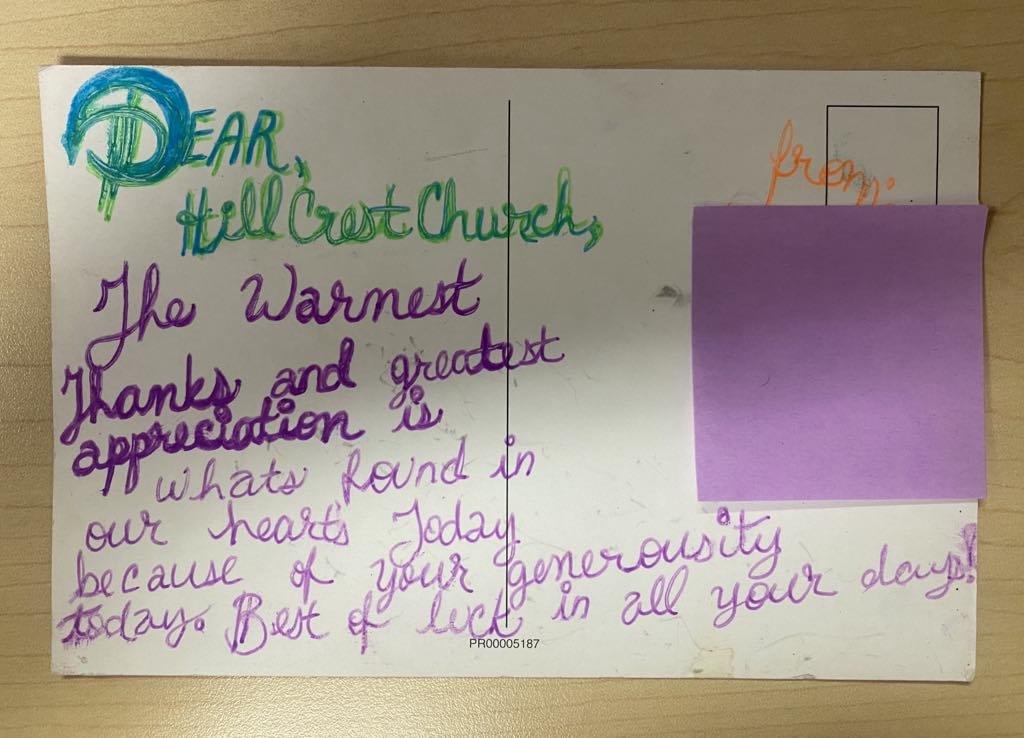 DEAR,
Hill Crest Church,
from:
The Warnest
Thanks and greatest
appreciation is
whats found in
our hearts Today
because of your generousity
today. Best of luck in all your days!
PR00005187